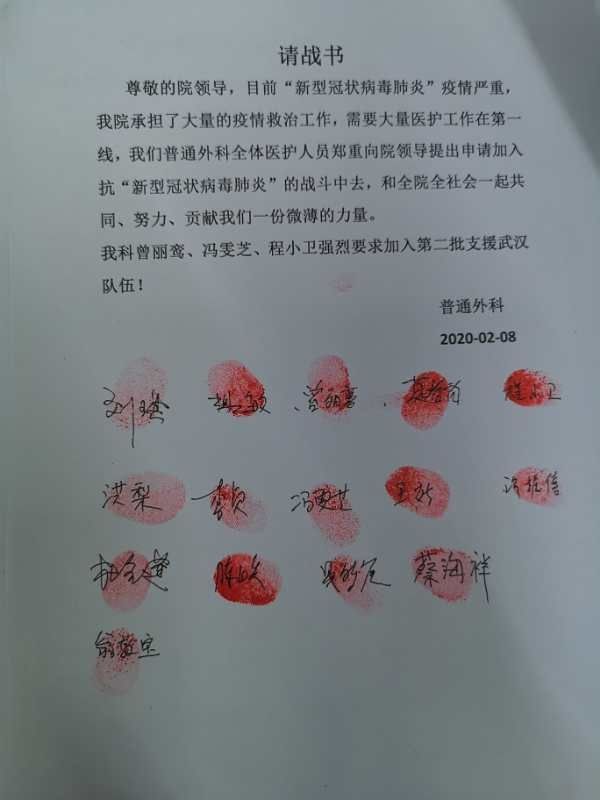 请战书
尊敬的院领导，目前“新型冠状病毒肺炎”疫情严重，
我院承担了大量的疫情救治工作，需要大量医护工作在第一
线，我们普通外科全体医护人员郑重向院领导提出申请加入
抗“新型冠状病毒肺炎”的战斗中去，和全院全社会一起共
同、努力、贡献我们一份微薄的力量。
我科曾丽鸾、冯雯芝、程小卫强烈要求加入第二批支援武汉
队伍！
普通外科
2020-02-08
曾丽鸾 程小卫
洪梨 李贞 冯雯芝
蔡海祥